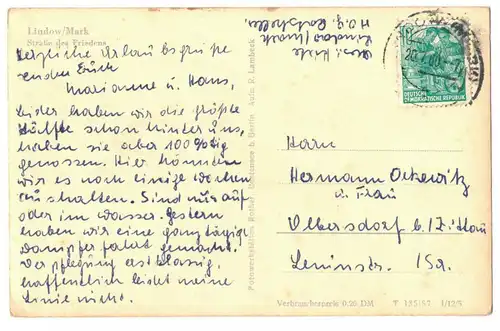 Lindow/Mark
Straße des Friedens
Herzliche Urlaubsgrüße
senden Euch
Marianne u. Hans,
Leider haben wir die größte
Hälfte schon hinter uns,
haben sie aber 100%tig
genossen. Hier könnten
wir es noch einige Wochen
aushalten. Sind nur auf
oder im Wasser. Gestern
haben wir eine ganztägige
Dampferfahrt gemacht.
Der pflegung erstklassig,
hoffentlich leidet meine
Linie nicht.
Lindow/Mark
H.O.G.
DEUTSCHE
DEMOKRATISCHE REPUBLIK
Aufn. R. Lambeck
b. Berlin
Herrn
Hermann Ockewitz
u. Frau
Olbersdorf b./Zittau
Leninstr. 15a.
Verbraucherpreis 0,20 DM T 135/57 1/12/5